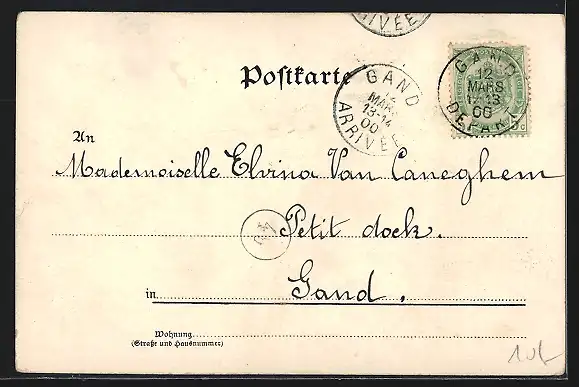 ARRIVÉE
Postkarte
GAND
12
MARS
13-14
00
ARRIVÉE
GAND
12
MARS
12-13
00
DEPART
5 c
An
Mademoiselle Elvina Van Caneghem
Petit dock.
Gand.
in
Wohnung
(Straße und Hausnummer)